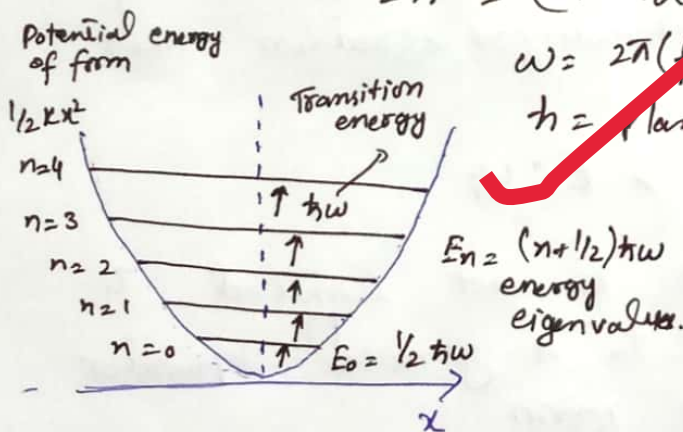 Potential energy
of form
1/2 Kx²
Transition
energy
ω = 2π(
ħ =
n=4
ħω
n=3
n=2
n=1
n=0
E₀ = 1/2 ħω
Eₙ = (n+1/2)ħω
energy
eigenvalues.
x